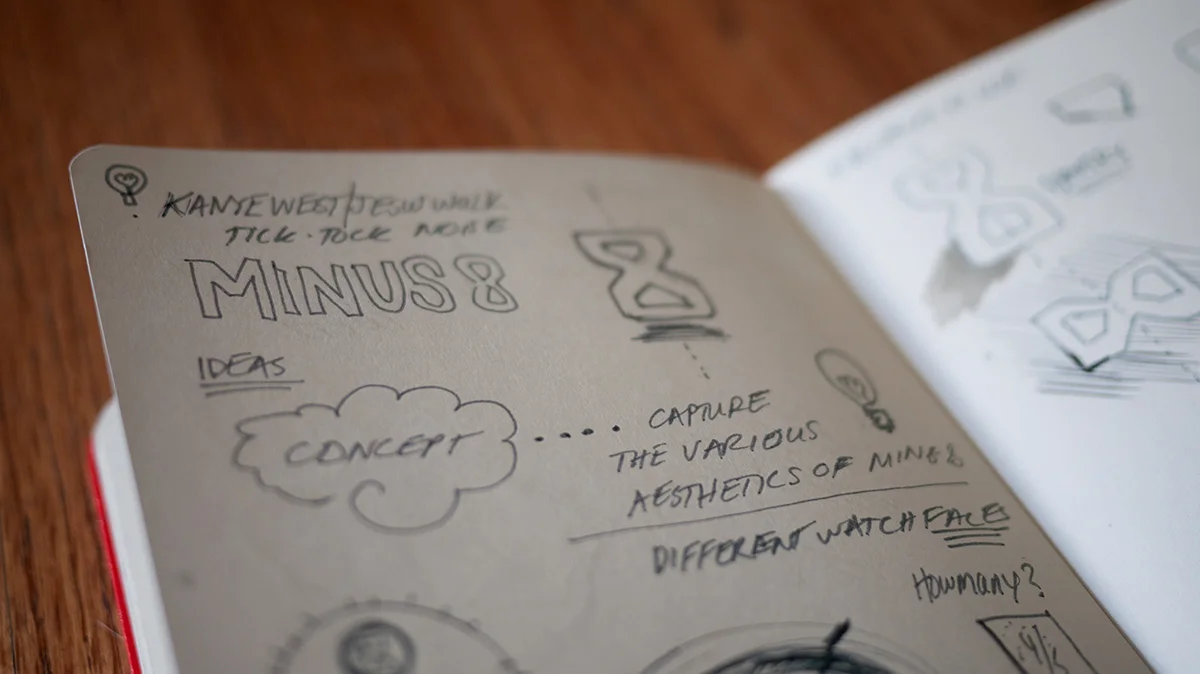 KANYE WEST/JESUS WALK
TICK · TOCK NOISE
MINUS 8
8
IDEAS
CONCEPT .... CAPTURE
THE VARIOUS
AESTHETICS OF MINUS 8
DIFFERENT WATCH FACES
How many?